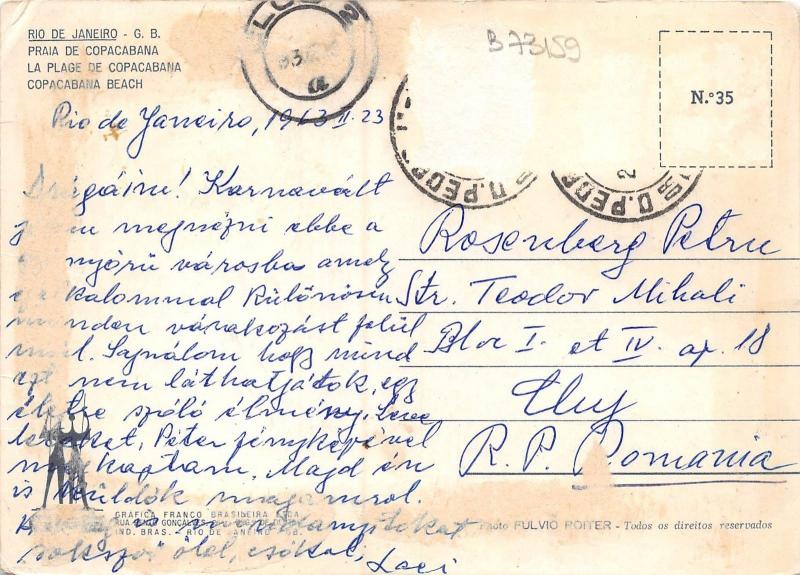 RIO DE JANEIRO - G. B.
PRAIA DE COPACABANA
LA PLAGE DE COPACABANA
COPACABANA BEACH
CLUJ 2
B 73159
N.º 35
Rio de Janeiro, 1963 II. 23
Drágáim! Karnevált
megnézni ebbe a
gyönyörü városba amely
alkalommal különösen
minden várakozást felül
mul. Sajnálom hogy mind
ezt nem láthatjátok, egy
életre szóló élmény. Leve
leteket, Péter fényképével
megkaptam. Majd én
is küldök magamrol.
sokszor ölel, csókol, Laci
Rosenberg Petru
Str. Teodor Mihali
Bloc I. et IV. ap. 18
Cluj
R. P. Romania
GRAFICA FRANCO BRASILEIRA
IND. BRAS. - RIO DE JANEIRO - GB.
Photo FULVIO ROITER - Todos os direitos reservados